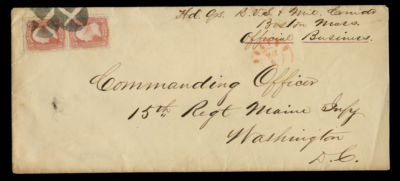 Hd. Qrs. R.V.S. & Mil. Comdr
Boston Mass.
Official Business.
Commanding Officer
15th Regt Maine Infy
Washington
D.C.